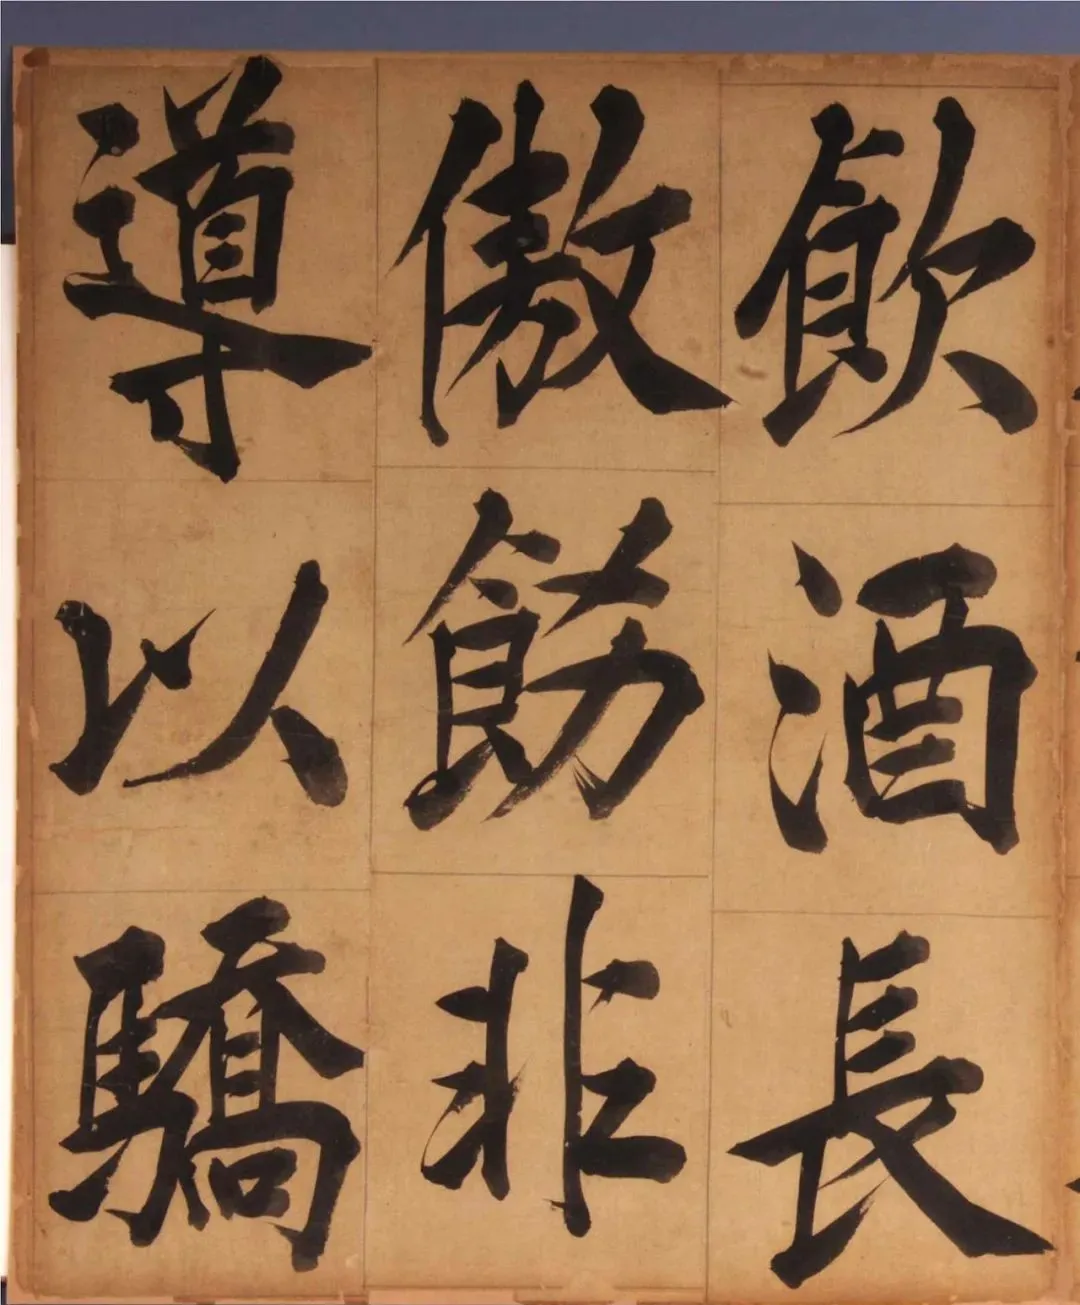 飲酒長
傲飭非
導以驕